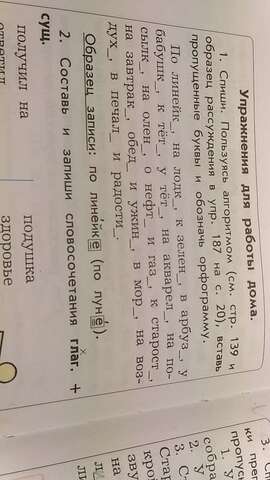 Упражнения для работы дома.
1. Спиши. Пользуясь алгоритмом (см. стр. 139 и
образец рассуждения в упр. 187 на с. 20), вставь
пропущенные буквы и обозначь орфограмму.
По линейк_, на лодк_, к зелен_, в арбуз_, у
бабушк_, к тёт_, у тёт_, на акварел_, на по-
сылк_, на олен_, о нефт_ и газ_, к старост_,
на завтрак_, обед_ и ужин_, в мор_, на воз-
дух_, в печал_ и радости_.
Образец записи: по линейке (по луне).
2. Составь и запиши словосочетания глаг. +
сущ.
получил на
ответил
подушка
здоровье
3. С
ки пре
пропус
1. У
собра
2. У
3. С
Стар
кро
зву
на